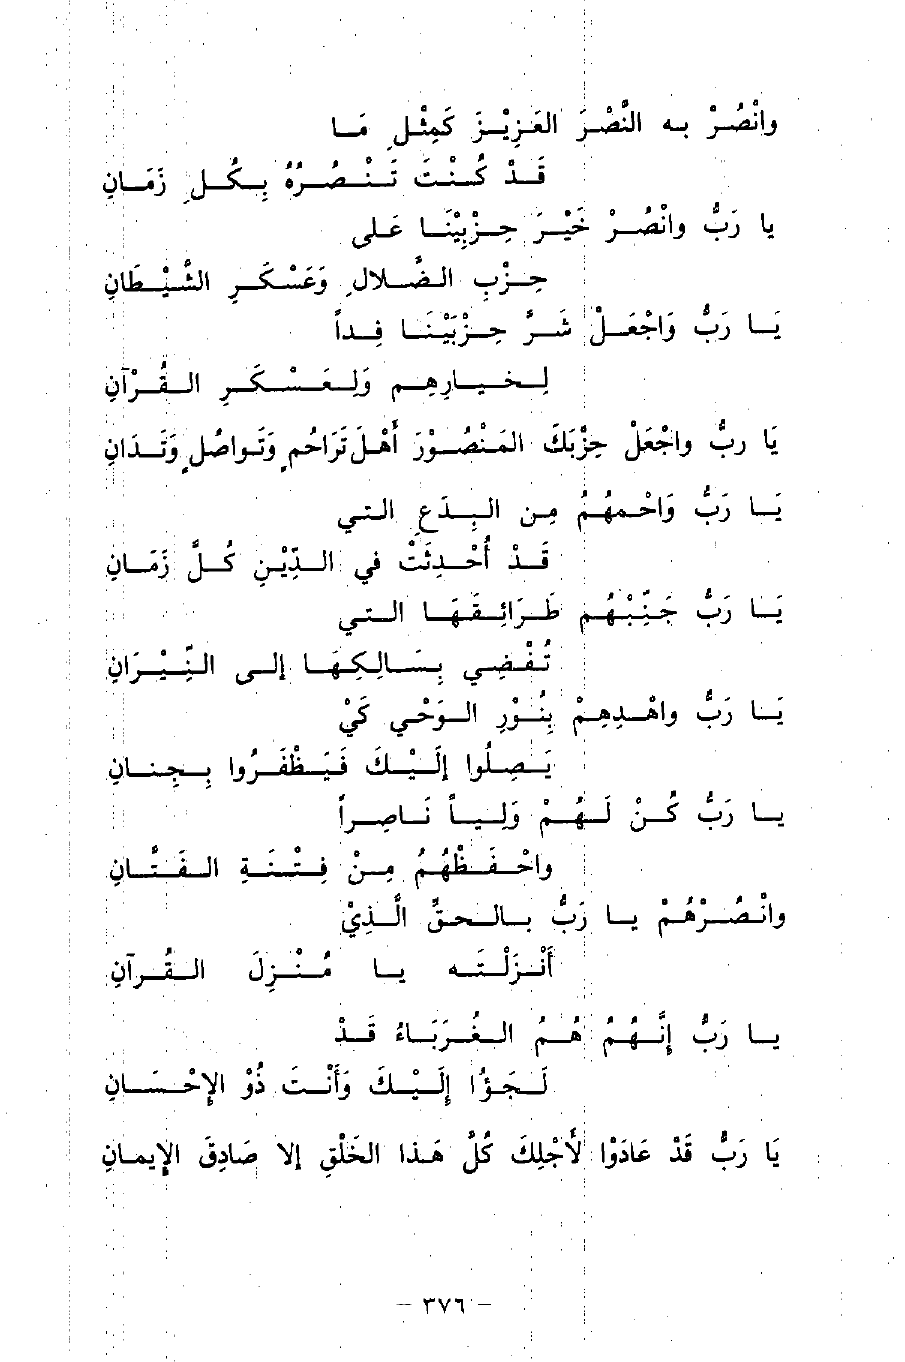 وانْصُرْ به النَّصْرَ العَزِيْزَ كَمِثْلِ مَا
قَدْ كُنْتَ تَنْصُرُهُ بِكُلِ زَمَانِ
يا رَبُّ وانْصُرْ خَيْرَ حِزْبِيْنَا عَلى
حِزْبِ الضُّلالِ وَعَسْكَرِ الشَّيْطَانِ
يَا رَبُّ وَاجْعَلْ شَرَّ حِزْبَيْنَا فِداً
لِخيارِهِم وَلِعَسْكَرِ القُرْآنِ
يَا ربُّ واجْعَلْ حِزْبَكَ المَنْصُوْرَ أَهْلَ تَرَاحُمٍ وَتَواصُلٍ وَتَدَانِ
يَا رَبُّ وَاحْمِهُمُ مِن البِدَعِ التي
قَدْ أُحْدِثَتْ في الدِّيْنِ كُلَّ زَمَانِ
يَا رَبُّ جَنِّبْهُم طَرَائِقَهَا التي
تُفْضِي بِسَالِكِهَا إلى النِّيْرَانِ
يَا رَبُّ واهْدِهِمْ بِنُوْرِ الوَحْي كَيْ
يَصِلُوا إلَيْكَ فَيَظْفَرُوا بِجِنانِ
يا رَبُّ كُنْ لَهُمْ وَلِياً نَاصِراً
واحْفَظْهُمُ مِنْ فِتْنَةِ الفَتَّانِ
وانْصُرْهُمْ يا رَبُّ بالحقِّ الَّذِيْ
أَنْزَلْتَه يا مُنْزِلَ القُرآنِ
يا رَبُّ إِنَّهُمُ هُمُ الغُرَبَاءُ قَدْ
لَجَؤُا إِلَيْكَ وَأَنْتَ ذُوْ الإِحْسَانِ
يَا رَبُّ قَدْ عَادَوْا لأَجْلِكَ كُلَّ هَذا الخَلْقِ إلا صَادِقَ الإِيمانِ
– ٣٧٦ –